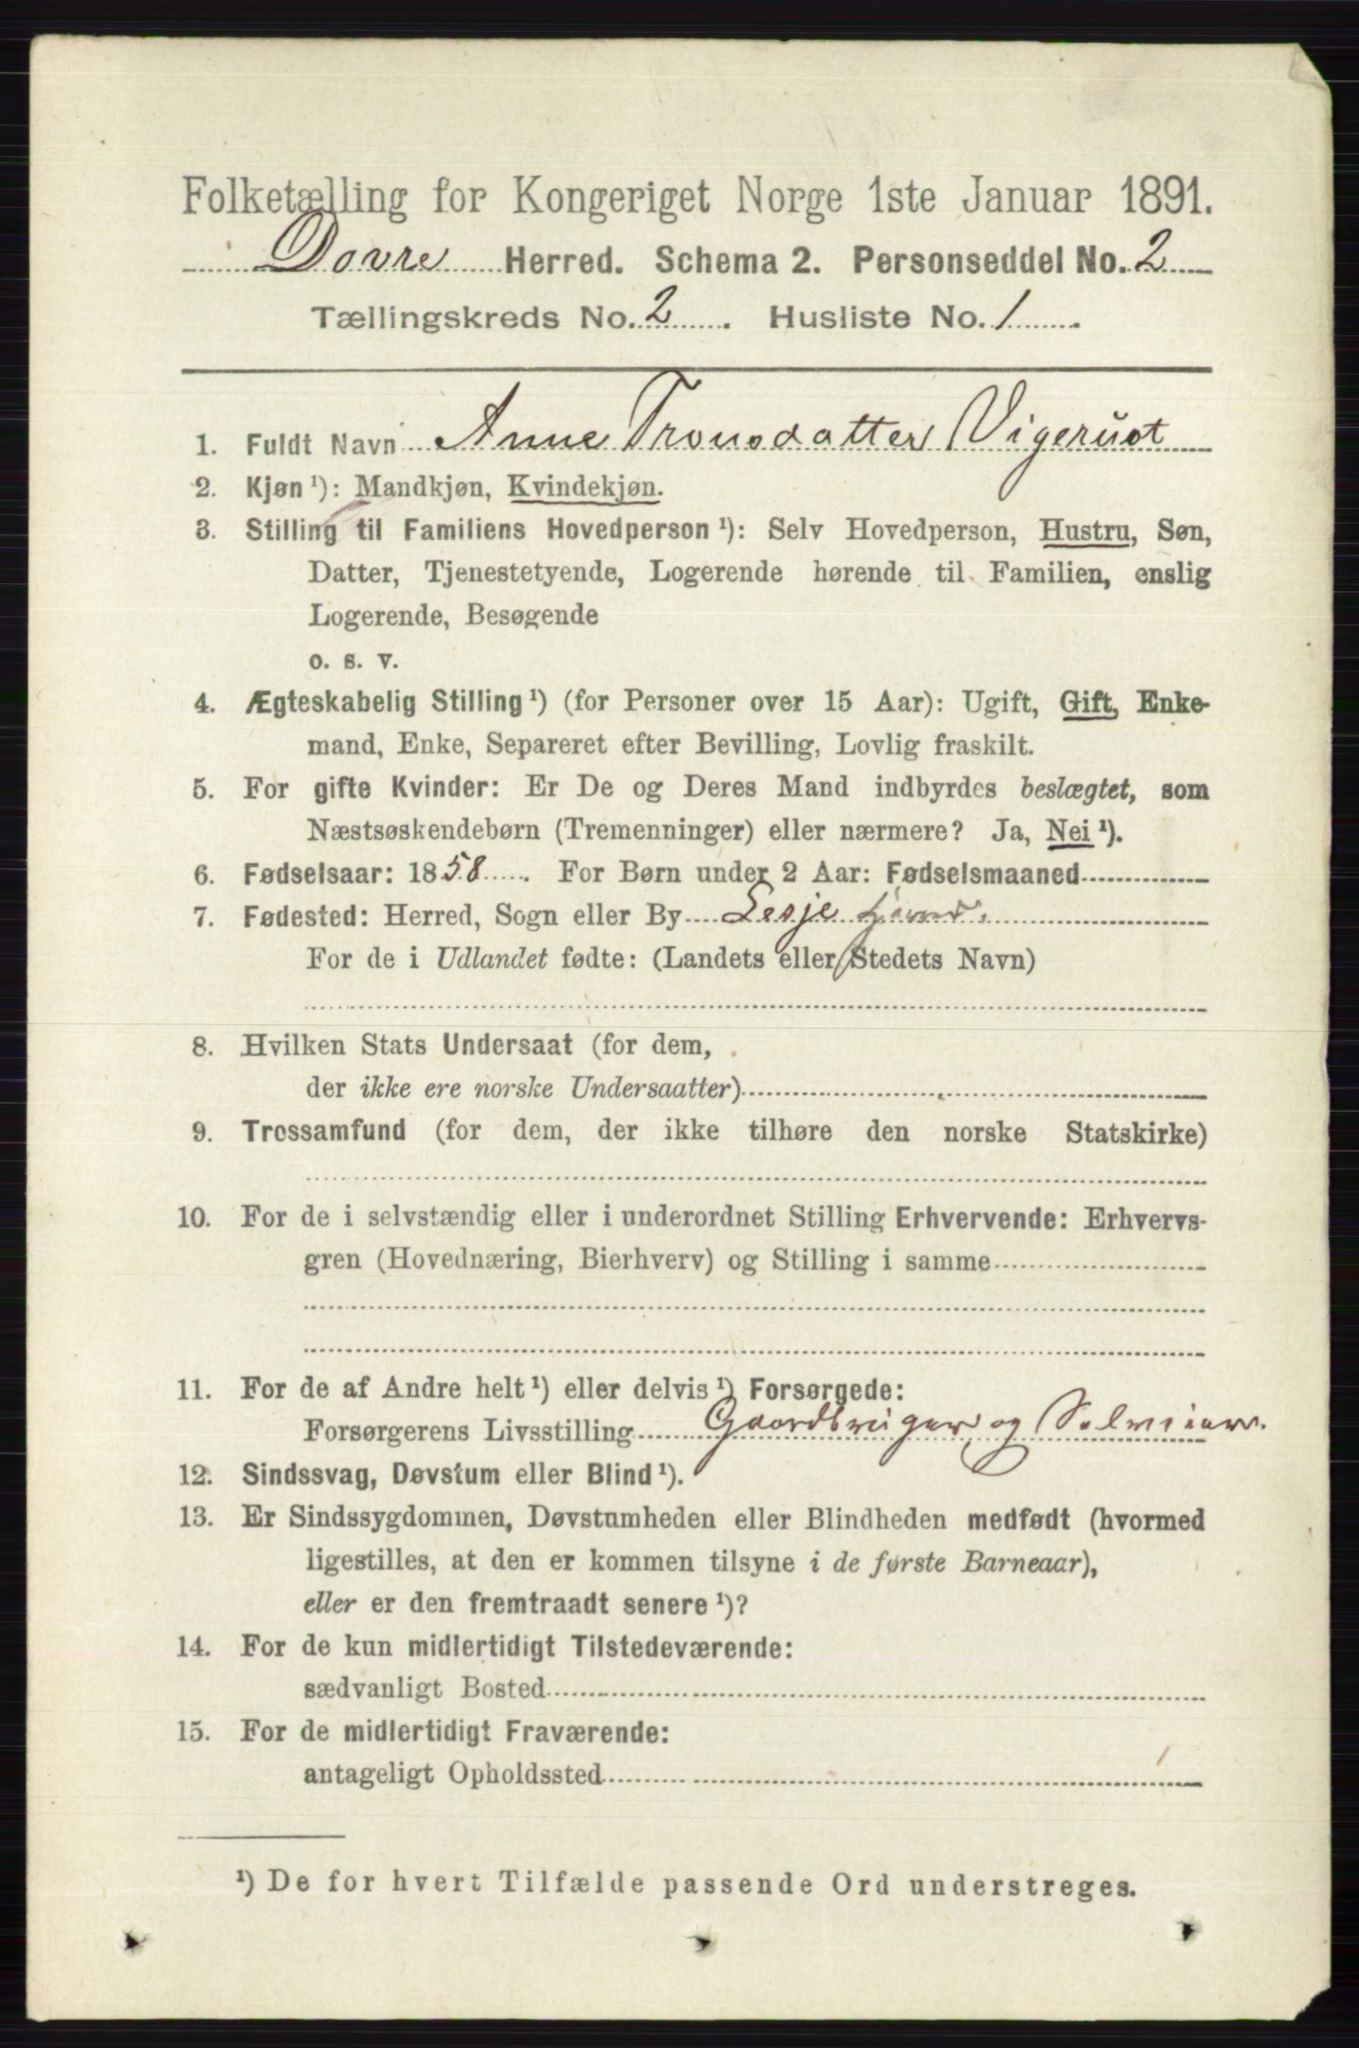 Folketælling for Kongeriget Norge 1ste Januar 1891.
Dovre Herred. Schema 2. Personseddel No. 2
Tællingskreds No. 2. Husliste No. 1.
1. Fuldt Navn Anne Tronsdatter Vigerust
2. Kjøn ¹): Mandkjøn, Kvindekjøn.
3. Stilling til Familiens Hovedperson ¹): Selv Hovedperson, Hustru, Søn,
Datter, Tjenestetyende, Logerende hørende til Familien, enslig
Logerende, Besøgende
o. s. v.
4. Ægteskabelig Stilling ¹) (for Personer over 15 Aar): Ugift, Gift, Enke-
mand, Enke, Separeret efter Bevilling, Lovlig fraskilt.
5. For gifte Kvinder: Er De og Deres Mand indbyrdes beslægtet, som
Næstsøskendebørn (Tremenninger) eller nærmere? Ja, Nei ¹).
6. Fødselsaar: 1858. For Børn under 2 Aar: Fødselsmaaned
7. Fødested: Herred, Sogn eller By Lesje
For de i Udlandet fødte: (Landets eller Stedets Navn)
8. Hvilken Stats Undersaat (for dem,
der ikke ere norske Undersaatter)
9. Trossamfund (for dem, der ikke tilhøre den norske Statskirke)
10. For de i selvstændig eller i underordnet Stilling Erhvervende: Erhvervs-
gren (Hovednæring, Bierhverv) og Stilling i samme
11. For de af Andre helt ¹) eller delvis ¹) Forsørgede:
Forsørgerens Livsstilling Gaardbruger og Selveier
12. Sindssvag, Døvstum eller Blind ¹).
13. Er Sindssygdommen, Døvstumheden eller Blindheden medfødt (hvormed
ligestilles, at den er kommen tilsyne i de første Barneaar),
eller er den fremtraadt senere ¹)?
14. For de kun midlertidigt Tilstedeværende:
sædvanligt Bosted
15. For de midlertidigt Fraværende:
antageligt Opholdssted
¹) De for hvert Tilfælde passende Ord understreges.